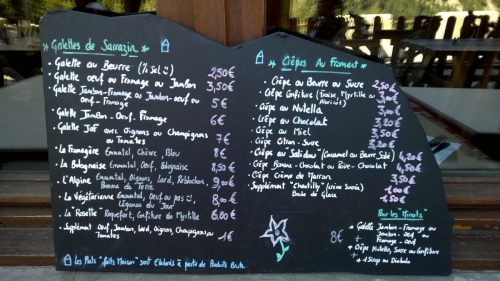 * Galettes de Sarrazin *
- Galette au Beurre (½ Sel) 2,50€
- Galette oeuf ou Fromage ou Jambon 3,50€
Galette Jambon-Fromage ou Jambon-oeuf ou
oeuf-Fromage 5€
- Galette Jambon. Oeuf. Fromage 6€
- Galette JOF avec Oignons ou Champignons
ou Tomates 7€
- La Fromagère Emmental, Chèvre, Bleu 8€
- La Bolognaise Emmental, Oeuf, Bolognaise 8,50€
- L'Alpine Emmental, Oignons, Lard, Reblochon,
Pomme de Terre 9,00€
- La Végétarienne Emmental, Oeuf ou pas
Légumes du Jour 8,00€
- La "Roselle" Roquefort, Confiture de Myrtille 6.00€
- Supplément Oeuf, Jambon, Lard, Oignons, Champignons ou
Tomates 1€
Les Plats "faits Maison" sont Élaborés à partir de Produits Bruts.
* Crêpes Au Froment *
- Crêpe au Beurre ou Sucre 2,50€
- Crêpe Confiture (Fraise, Myrtille ou
Abricot) 3,50€
- Crêpe au Nutella 3,50€
- Crêpe au Chocolat 3,20€
- Crêpe au Miel 3,50€
- Crêpe Citron - Sucre 3,20€
- Crêpe au Salidou (Caramel au Beurre Salé) 4,20€
- Crêpe Banane - Chocolat ou Poire - Chocolat 4,50€
- Crêpe Crème de Marron 3,50€
- Supplément "Chantilly" (crème Sucrée) 1,00€
Boule de Glace 1,50€
Pour les Minots
8€
* Galette Jambon - Fromage ou
Jambon - Oeuf ou
Oeuf - Fromage
+ Crêpe Nutella, Sucre ou Confiture
+ 1 Sirop ou Diabolo